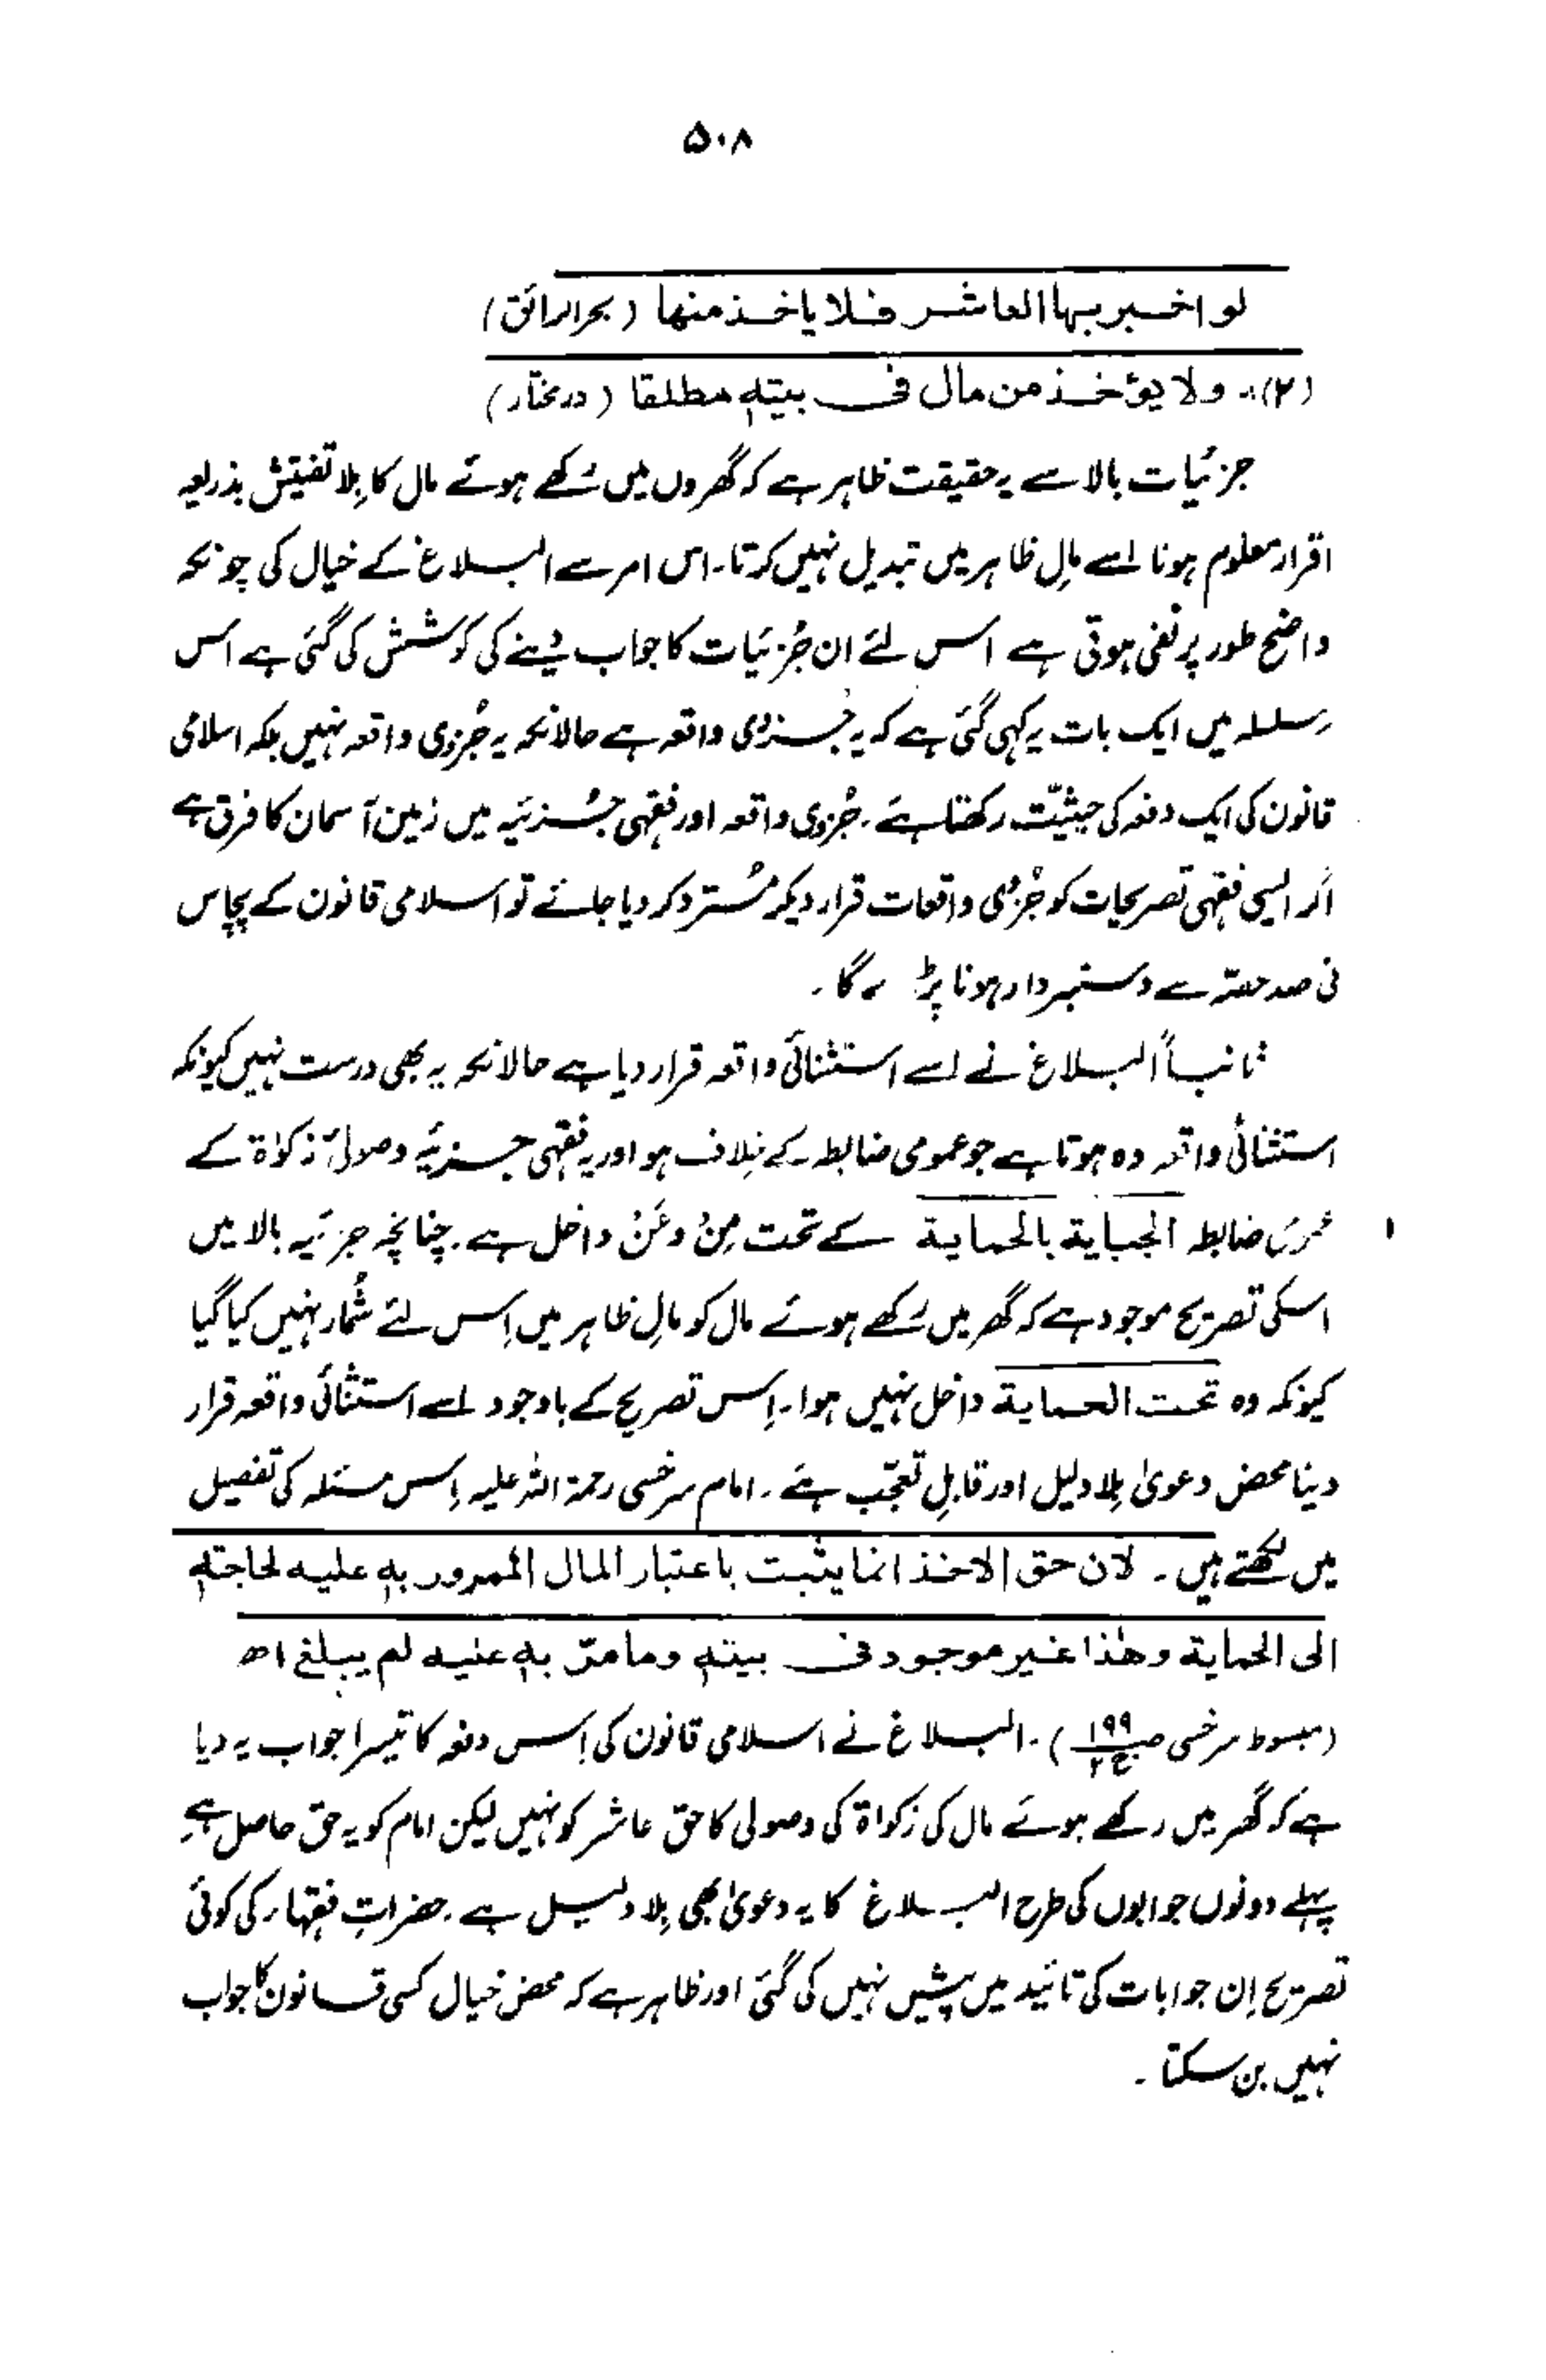 ۵۰۸
لو اخبر بہا العاشر فلا یاخذ منھا (بحر الرائق)
(۲)۔ ولا یؤخذ من مال فی بیتہٖ مطلقا (در مختار)
جزئیات بالا سے یہ حقیقت ظاہر ہے کہ گھروں میں رکھے ہوئے مال کا بِلا تفتیش بذریعہ
اقرار معلوم ہونا اسے مالِ ظاہر میں تبدیل نہیں کرتا۔ اس امر سے البلاغ کے خیال کی چونکہ
واضح طور پر نفی ہوتی ہے اس لئے ان جُزئیات کا جواب دینے کی کوشش کی گئی ہے اس
سلسلہ میں ایک بات یہ کہی گئی ہے کہ یہ جُزوی واقعہ ہے حالانکہ یہ جُزوی واقعہ نہیں بلکہ اسلامی
قانون کی ایک دفعہ کی حیثیّت رکھتا ہے۔ جُزوی واقعہ اور فقہی جُزئیہ میں زمین آسمان کا فرق ہے
اگر ایسی فقہی تصریحات کو جُزوی واقعات قرار دیکر مُسترد کر دیا جائے تو اسلامی قانون کے پچاس
فی صد حصّہ سے دستبردار ہونا پڑے گا۔
ثانیاً البلاغ نے اسے استثنائی واقعہ قرار دیا ہے حالانکہ یہ بھی درست نہیں کیونکہ
استثنائی واقعہ وہ ہوتا ہے جو عمومی ضابطہ کے خلاف ہو اور یہ فقہی جزئیہ وصولیٔ زکوٰة کے
عمومی ضابطہ الجبایة بالحمایة کے تحت مِنْ وعَنْ داخل ہے۔ چنانچہ جزئیہ بالا میں
اسکی تصریح موجود ہے کہ گھر میں رکھے ہوئے مال کو مالِ ظاہر میں اِس لئے شُمار نہیں کیا گیا
کیونکہ وہ تحت الحمایة داخل نہیں ہوا۔ اِس تصریح کے باوجود اسے استثنائی واقعہ قرار
دینا محض دعویٰ بِلا دلیل اور قابلِ تعجّب ہے۔ امام سرخسی رحمۃ اللہ علیہ اِس مسئلہ کی تفصیل
میں لکھتے ہیں۔ لان حق الاخذ انما یثبت باعتبار المال الممرور بہٖ علیہ لحاجتہٖ
الی الحمایة وھٰذا غیر موجود فی بیتہٖ وما مرّ بہٖ علیہ لم یبلغ اھ
(مبسوط سرخسی ص ۱۹۹ ج ۲)۔ البلاغ نے اسلامی قانون کی اِس دفعہ کا تیسرا جواب یہ دیا
ہے کہ گھر میں رکھے ہوئے مال کی زکواة کی وصولی کا حق عاشر کو نہیں لیکن امام کو یہ حق حاصل ہے
پہلے دونوں جوابوں کی طرح البلاغ کا یہ دعویٰ بھی بِلا دلیل ہے۔ حضراتِ فقہاء کی کوئی
تصریح اِن جوابات کی تائید میں پیش نہیں کی گئی اور ظاہر ہے کہ محض خیال کسی قانون کا جواب
نہیں بن سکتا۔